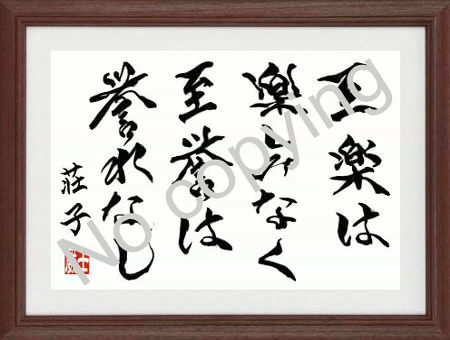 至楽は
楽しみなく
至誉は
誉れなし
荘子
No copying